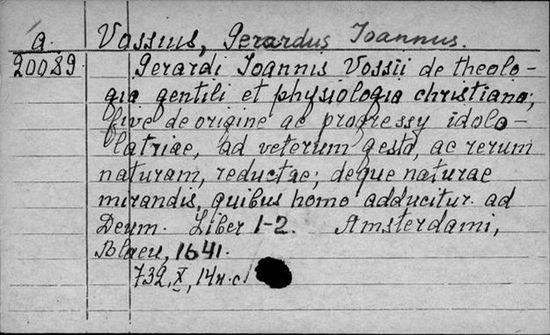 a. Vossius, Gerardus Joannus.
20089 Gerardi Joannis Vossii de theolo-
gia gentili et physiologia christiana;
five de origine ac progressy idolo-
latriae, ad veterum gesta, ac rerum
naturam, reductae; deque naturae
mirandis, quibus homo adducitur ad
Deum. Liber 1-2. Amsterdami,
Blaeu, 1641.
732, X, 14 н. с.